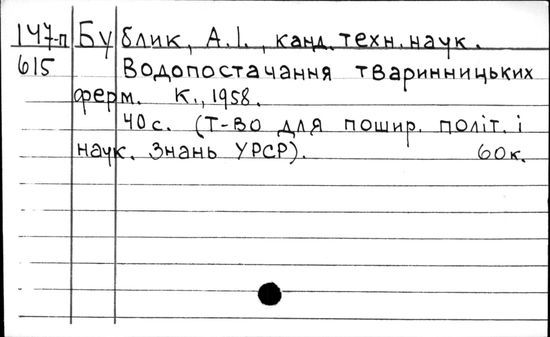 147-п Бублик, А.І., канд. техн. наук.
615 Водопостачання тваринницьких
ферм. К., 1958.
40с. (Т-во для пошир. політ. і
наук. знань УРСР). 60к.